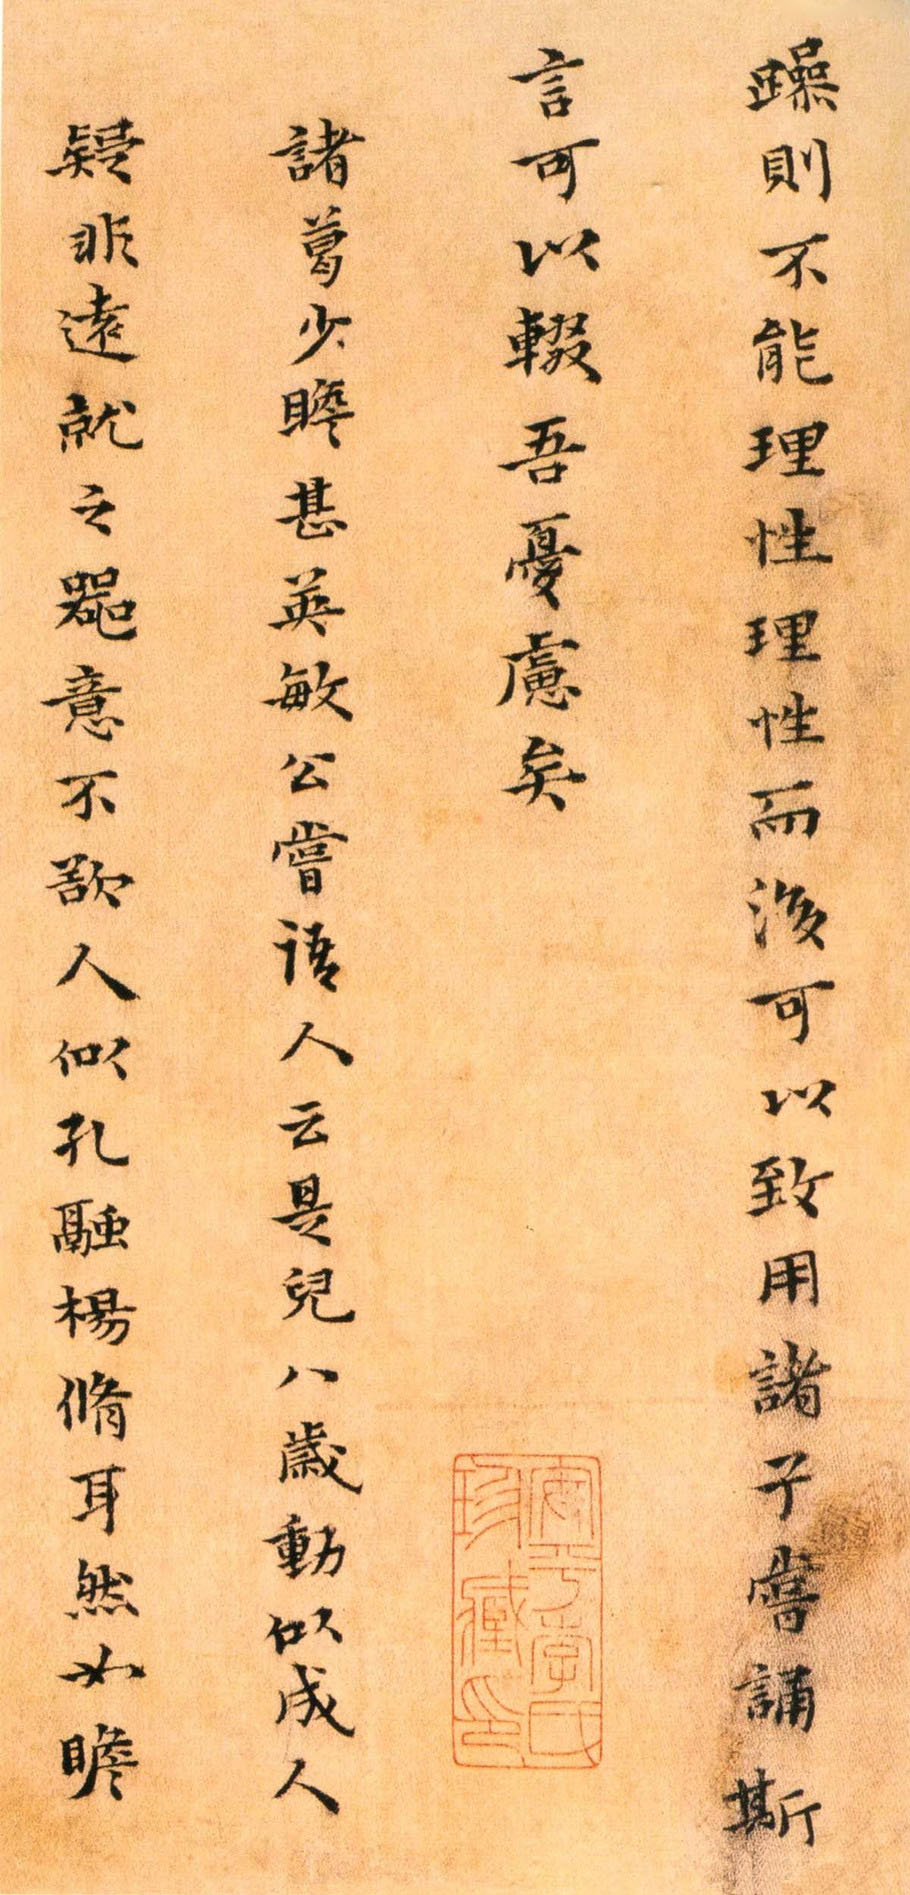 躁則不能理性理性而後可以致用諸子嘗誦斯
言可以輟吾憂慮矣
諸葛少瞻甚英敏公嘗語人云是兒八歲動似成人
疑非遠就之器意不欲人似孔融楊脩耳然如瞻
珍藏印